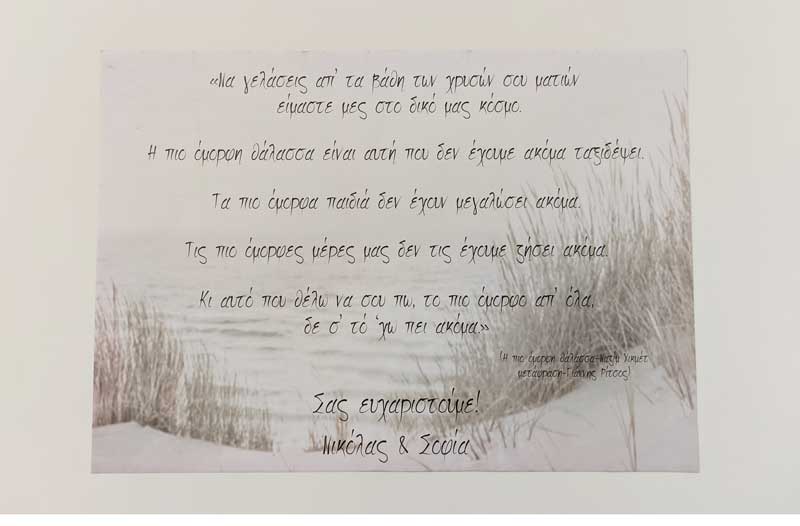 «Να γελάσεις απ' τα βάθη των χρυσών σου ματιών
είμαστε μες στο δικό μας κόσμο.
Η πιο όμορφη θάλασσα είναι αυτή που δεν έχουμε ακόμα ταξιδέψει.
Τα πιο όμορφα παιδιά δεν έχουν μεγαλώσει ακόμα.
Τις πιο όμορφες μέρες μας δεν τις έχουμε ζήσει ακόμα.
Κι αυτό που θέλω να σου πω, το πιο όμορφο απ' όλα,
δε σ' τό 'χω πει ακόμα.»
(Η πιο όμορφη θάλασσα-Ναζίμ Χικμέτ
μετάφραση-Γιάννης Ρίτσος)
Σας ευχαριστούμε!
Νικόλας & Σοφία